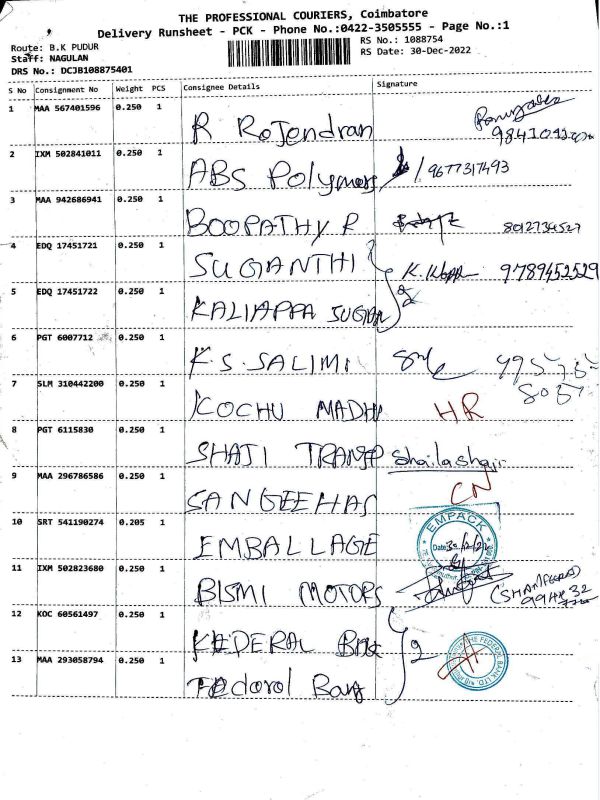 THE PROFESSIONAL COURIERS, Coimbatore
Delivery Runsheet - PCK - Phone No.:0422-3505555 - Page No.:1
Route: B.K PUDUR
Staff: NAGULAN
DRS No.: DCJB108875401
RS No.: 1088754
RS Date: 30-Dec-2022
S No Consignment No Weight PCS Consignee Details Signature
1 MAA 567401596 0.250 1 R Rojendran
2 IXM 502841011 0.250 1 ABS Polymers 9677317493
3 MAA 942686941 0.250 1 BOOPATHY R 8012734527
4 EDQ 17451721 0.250 1 SUGANTHI 9789452529
5 EDQ 17451722 0.250 1 KALIAPPA SUGAN 2
6 PGT 6007712 0.250 1 K.S.SALIMI
7 SLM 310442200 0.250 1 KOCHU MADHI HR
8 PGT 6115830 0.250 1 SHAJI TRANSP Shailashaji
9 MAA 296786586 0.250 1 SANGEEHAS CN
10 SRT 541190274 0.205 1 EMBALLAGE EMPACK
Date
11 IXM 502823680 0.250 1 BISMI MOTORS
12 KOC 60561497 0.250 1 FEDERAL Bank 2
13 MAA 293058794 0.250 1 Fedorol Bank THE FEDERAL BANK LTD.